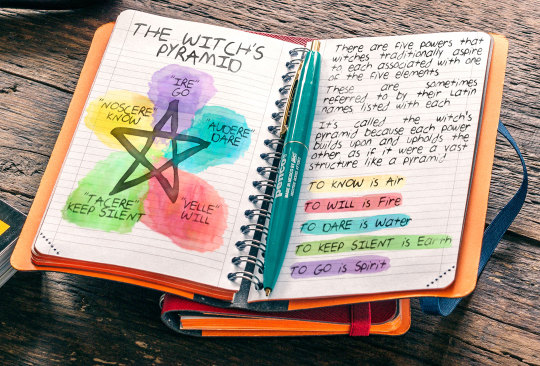 THE WITCH'S
PYRAMID
"IRE"
GO
"NOSCERE"
KNOW
"AUDERE"
DARE
"TACERE"
KEEP SILENT
"VELLE"
WILL
There are five powers that
witches traditionally aspire
to each associated with one
of the five elements
These are sometimes
referred to by their Latin
names listed with each
It's called the witch's
pyramid because each power
builds upon and upholds the
other as if it were a vast
structure like a pyramid
TO KNOW is Air
TO WILL is Fire
TO DARE is Water
TO KEEP SILENT is Earth
TO GO is Spirit